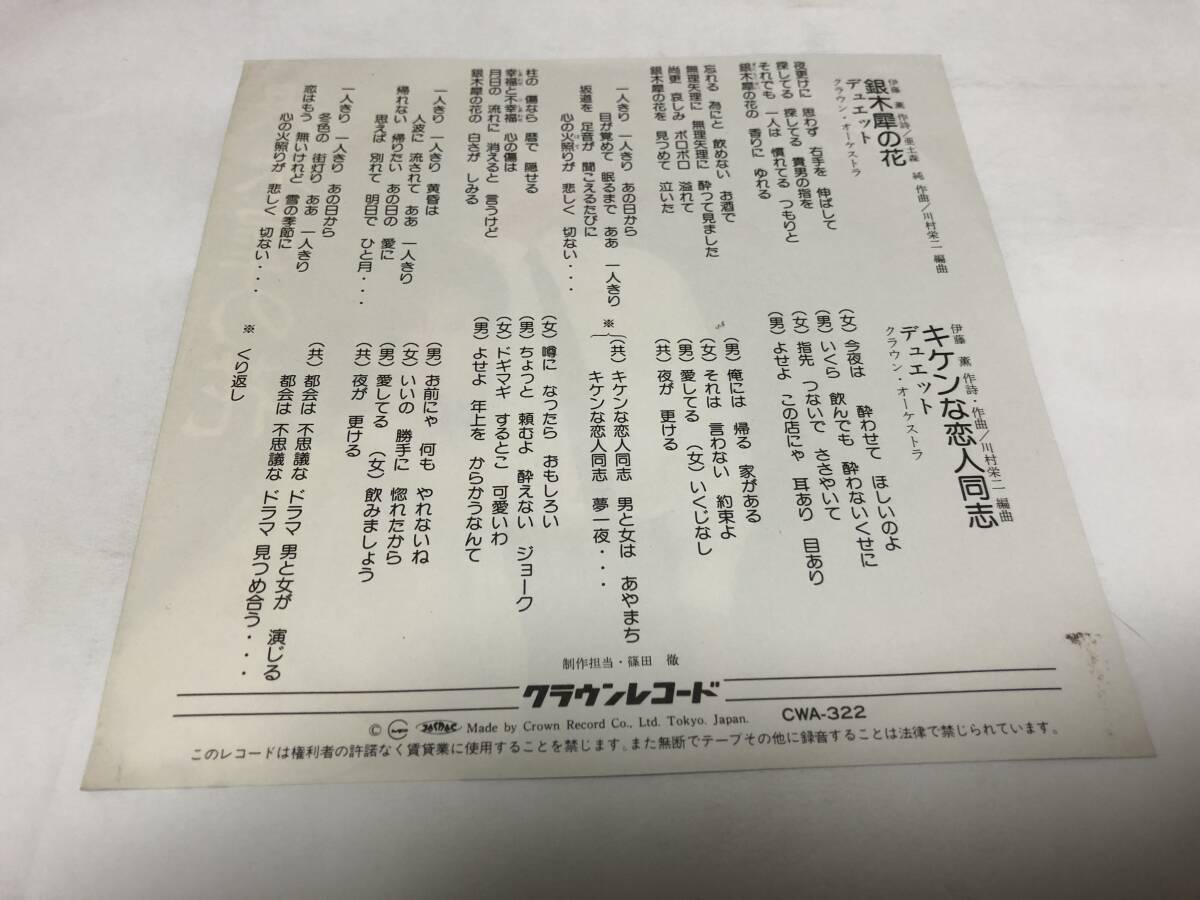 伊藤 薫 作詩／亜土森 純 作曲／川村栄二 編曲
銀木犀の花
デュエット
クラウン・オーケストラ
夜更けに 思わず 右手を 伸ばして
探してる 探してる 貴男の指を
それでも 一人は 慣れてる つもりと
銀木犀の花の 香りに ゆれる
忘れる 為にと 飲めない お酒で
無理矢理に 無理矢理に 酔って見ました
尚更 哀しみ ポロポロ 溢れて
銀木犀の花を 見つめて 泣いた
一人きり 一人きり あの日から
目が覚めて 眠るまで ああ 一人きり
坂道を 足音が 聞こえるたびに
心の火照りが 悲しく 切ない・・・
柱の 傷なら 暦で 隠せる
幸福と不幸福 心の傷は
月日の 流れに 消えると 言うけど
銀木犀の花の 白さが しみる
一人きり 一人きり 黄昏は
人波に 流されて ああ 一人きり
帰れない 帰りたい あの日の 愛に
思えば 別れて 明日で ひと月・・・
一人きり 一人きり あの日から
冬色の 街灯り ああ 一人きり
恋はもう 無いけれど 雪の季節に
心の火照りが 悲しく 切ない・・・・
伊藤 薫 作詩・作曲／川村栄二 編曲
キケンな恋人同志
デュエット
クラウン・オーケストラ
(女) 今夜は 酔わせて ほしいのよ
(男) いくら 飲んでも 酔わないくせに
(女) 指先 つないで ささやいて
(男) よせよ この店にゃ 耳あり 目あり
(男) 俺には 帰る 家がある
(女) それは 言わない 約束よ
(男) 愛してる (女) いくじなし
(共) 夜が 更ける
※ (共) キケンな恋人同志 男と女は あやまち
キケンな恋人同志 夢一夜・・・
(女) 噂に なったら おもしろい
(男) ちょっと 頼むよ 酔えない ジョーク
(女) ドギマギ するとこ 可愛いわ
(男) よせよ 年上を からかうなんて
(男) お前にゃ 何も やれないね
(女) いいの 勝手に 惚れたから
(男) 愛してる (女) 飲みましょう
(共) 夜が 更ける
(共) 都会は 不思議な ドラマ 男と女が 演じる
都会は 不思議な ドラマ 見つめ合う・・・・
※ くり返し
制作担当・篠田 徹
クラウンレコード
© JASRAC Made by Crown Record Co., Ltd. Tokyo. Japan. CWA-322
このレコードは権利者の許諾なく賃貸業に使用することを禁じます。また無断でテープその他に録音することは法律で禁じられています。